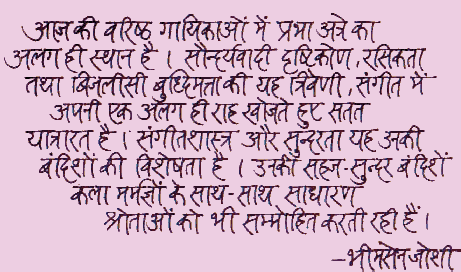 आज की वरिष्ठ गायिकाओं में प्रभा अत्रे का
अलग ही स्थान है । सौन्दर्यवादी दृष्टिकोण, रसिकता
तथा बिजलीसी बुध्दिमत्ता की यह त्रिवेणी, संगीत में
अपनी एक अलग ही राह खोजते हुए सतत
यात्रारत है । संगीतशास्त्र और सुन्दरता यह उनकी
बंदिशों की विशेषता है । उनकी सहज-सुन्दर बंदिशें
कला मर्मज्ञों के साथ-साथ साधारण
श्रोताओं को भी सम्मोहित करती रही हैं ।
–भीमसेन जोशी